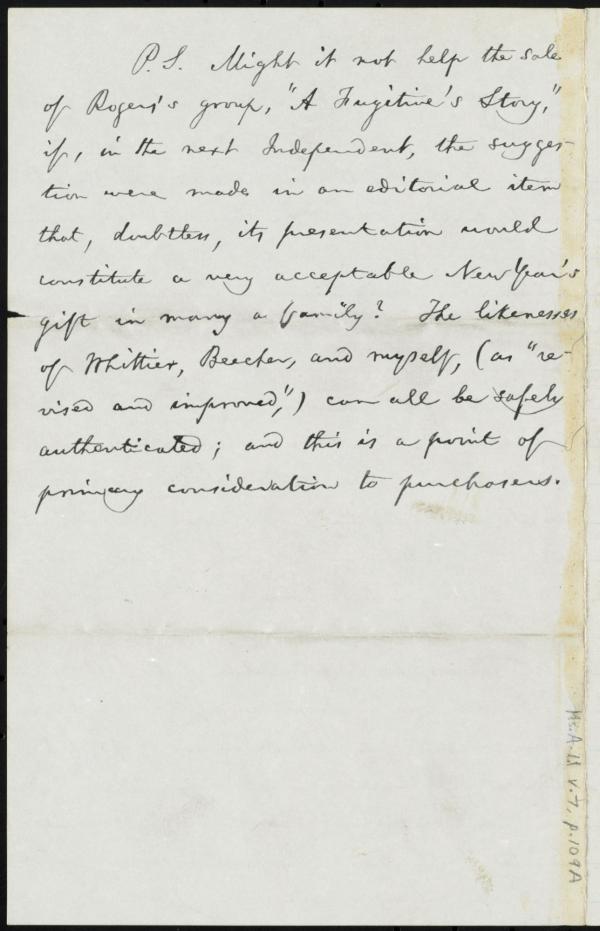 P.S. Might it not help the sale
of Rogers's group, "A Fugitive's Story,"
if, in the next Independent, the sugges-
tion were made in an editorial item
that, doubtless, its presentation would
constitute a very acceptable New Year's
gift in many a family? The likenesses
of Whittier, Beecher, and myself, (as "re-
vised and improved,") can all be safely
authenticated; and this is a point of
primary consideration to purchasers.
Ms.A.1.1 v.7, p.109A